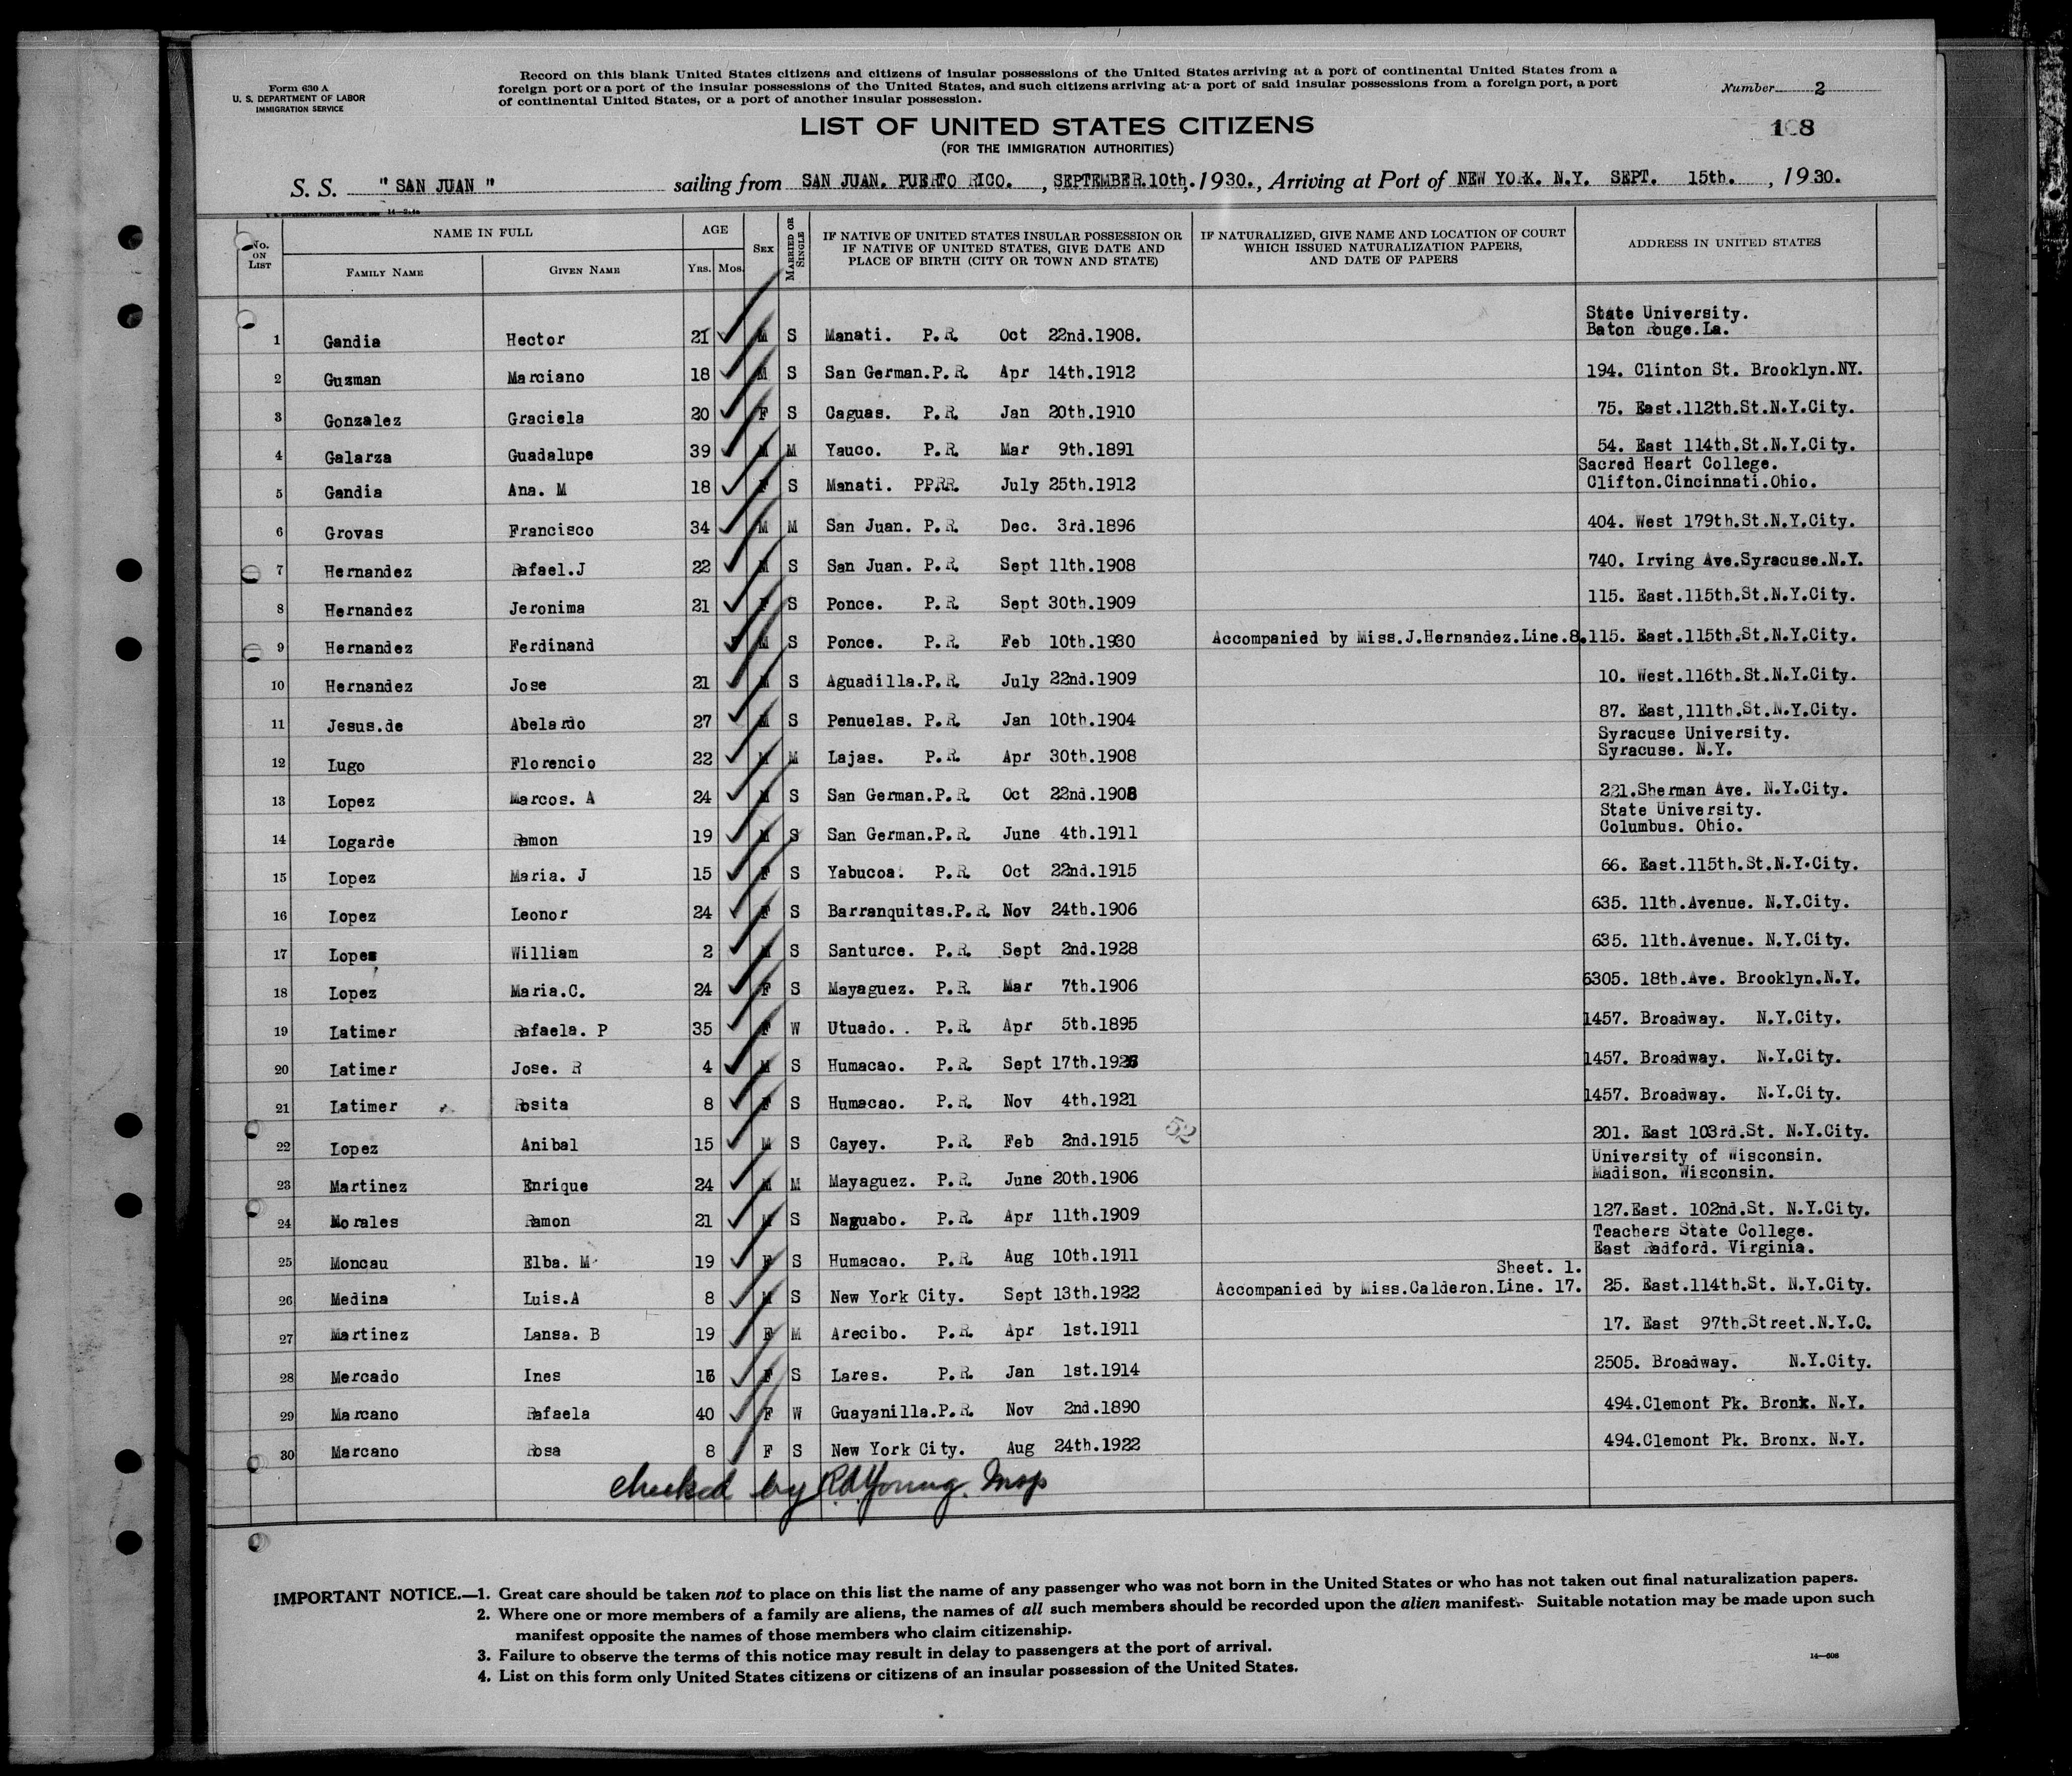 Form 630 A
U. S. DEPARTMENT OF LABOR
IMMIGRATION SERVICE
Record on this blank United States citizens and citizens of insular possessions of the United States arriving at a port of continental United States from a
foreign port or a port of the insular possessions of the United States, and such citizens arriving at a port of said insular possessions from a foreign port, a port
of continental United States, or a port of another insular possession.
Number 2
LIST OF UNITED STATES CITIZENS
(FOR THE IMMIGRATION AUTHORITIES)
S. S. " SAN JUAN " sailing from SAN JUAN. PUERTO RICO. , SEPTEMBER.10th,.1930., Arriving at Port of NEW YORK. N.Y. SEPT. 15th. , 1930.
No. ON LIST
NAME IN FULL
FAMILY NAME
GIVEN NAME
AGE
YRS. MOS.
SEX
MARRIED OR SINGLE
IF NATIVE OF UNITED STATES INSULAR POSSESSION OR
IF NATIVE OF UNITED STATES, GIVE DATE AND
PLACE OF BIRTH (CITY OR TOWN AND STATE)
IF NATURALIZED, GIVE NAME AND LOCATION OF COURT
WHICH ISSUED NATURALIZATION PAPERS,
AND DATE OF PAPERS
ADDRESS IN UNITED STATES
State University.
1 Gandia Hector 21 M S Manati. P.R. Oct 22nd.1908. Baton Rouge.La.
2 Guzman Marciano 18 M S San German.P.R. Apr 14th.1912 194. Clinton St. Brooklyn.NY.
3 Gonzalez Graciela 20 F S Caguas. P.R. Jan 20th.1910 75. East.112th.St.N.Y.City.
4 Galarza Guadalupe 39 M M Yauco. P.R. Mar 9th.1891 54. East 114th.St.N.Y.City.
Sacred Heart College.
5 Gandia Ana. M 18 F S Manati. PPRR. July 25th.1912 Clifton.Cincinnati.Ohio.
6 Grovas Francisco 34 M M San Juan. P.R. Dec. 3rd.1896 404. West 179th.St.N.Y.City.
7 Hernandez Rafael.J 22 M S San Juan. P.R. Sept 11th.1908 740. Irving Ave.Syracuse.N.Y.
8 Hernandez Jeronima 21 F S Ponce. P.R. Sept 30th.1909 115. East.115th.St.N.Y.City.
9 Hernandez Ferdinand M S Ponce. P.R. Feb 10th.1930 Accompanied by Miss.J.Hernandez.Line.8. 115. East.115th.St.N.Y.City.
10 Hernandez Jose 21 M S Aguadilla.P.R. July 22nd.1909 10. West.116th.St.N.Y.City.
11 Jesus.de Abelardo 27 M S Penuelas. P.R. Jan 10th.1904 87. East,111th.St.N.Y.City.
Syracuse University.
12 Lugo Florencio 22 M M Lajas. P.R. Apr 30th.1908 Syracuse. N.Y.
13 Lopez Marcos. A 24 M S San German.P.R. Oct 22nd. 221.Sherman Ave. N.Y.City.
State University.
14 Logarde Ramon 19 M S San German.P.R. June 4th.1911 Columbus. Ohio.
15 Lopez Maria. J 15 F S Yabucoa. P.R. Oct 22nd.1915 66. East.115th.St.N.Y.City.
16 Lopez Leonor 24 F S Barranquitas.P.R. Nov 24th.1906 635. 11th.Avenue. N.Y.City.
17 Lopez William 2 M S Santurce. P.R. Sept 2nd.1928 635. 11th.Avenue. N.Y.City.
18 Lopez Maria.C. 24 F S Mayaguez. P.R. Mar 7th.1906 6305. 18th.Ave. Brooklyn.N.Y.
19 Latimer Rafaela. P 35 F W Utuado. . P.R. Apr 5th.1895 1457. Broadway. N.Y.City.
20 Latimer Jose. R 4 M S Humacao. P.R. Sept 17th. 1457. Broadway. N.Y.City.
21 Latimer Rosita 8 F S Humacao. P.R. Nov 4th.1921 1457. Broadway. N.Y.City.
52
22 Lopez Anibal 15 M S Cayey. P.R. Feb 2nd.1915 201. East 103rd.St. N.Y.City.
University of Wisconsin.
23 Martinez Enrique 24 M M Mayaguez. P.R. June 20th.1906 Madison. Wisconsin.
24 Morales Ramon 21 M S Naguabo. P.R. Apr 11th.1909 127.East. 102nd.St. N.Y.City.
Teachers State College.
25 Moncau Elba. M 19 F S Humacao. P.R. Aug 10th.1911 East Radford. Virginia.
Sheet. 1.
26 Medina Luis.A 8 M S New York City. Sept 13th.1922 Accompanied by Miss.Calderon.Line. 17. 25. East.114th.St. N.Y.City.
27 Martinez Lansa. B 19 F M Arecibo. P.R. Apr 1st.1911 17. East 97th.Street.N.Y.C.
28 Mercado Ines 16 F S Lares. P.R. Jan 1st.1914 2505. Broadway. N.Y.City.
29 Marcano Rafaela 40 F W Guayanilla.P.R. Nov 2nd.1890 494.Clemont Pk. Bronx. N.Y.
30 Marcano Rosa 8 F S New York City. Aug 24th.1922 494.Clemont Pk. Bronx. N.Y.
checked by R.d.Young. Insp
IMPORTANT NOTICE.—1. Great care should be taken not to place on this list the name of any passenger who was not born in the United States or who has not taken out final naturalization papers.
2. Where one or more members of a family are aliens, the names of all such members should be recorded upon the alien manifest. Suitable notation may be made upon such
manifest opposite the names of those members who claim citizenship.
3. Failure to observe the terms of this notice may result in delay to passengers at the port of arrival.
4. List on this form only United States citizens or citizens of an insular possession of the United States.
14—608